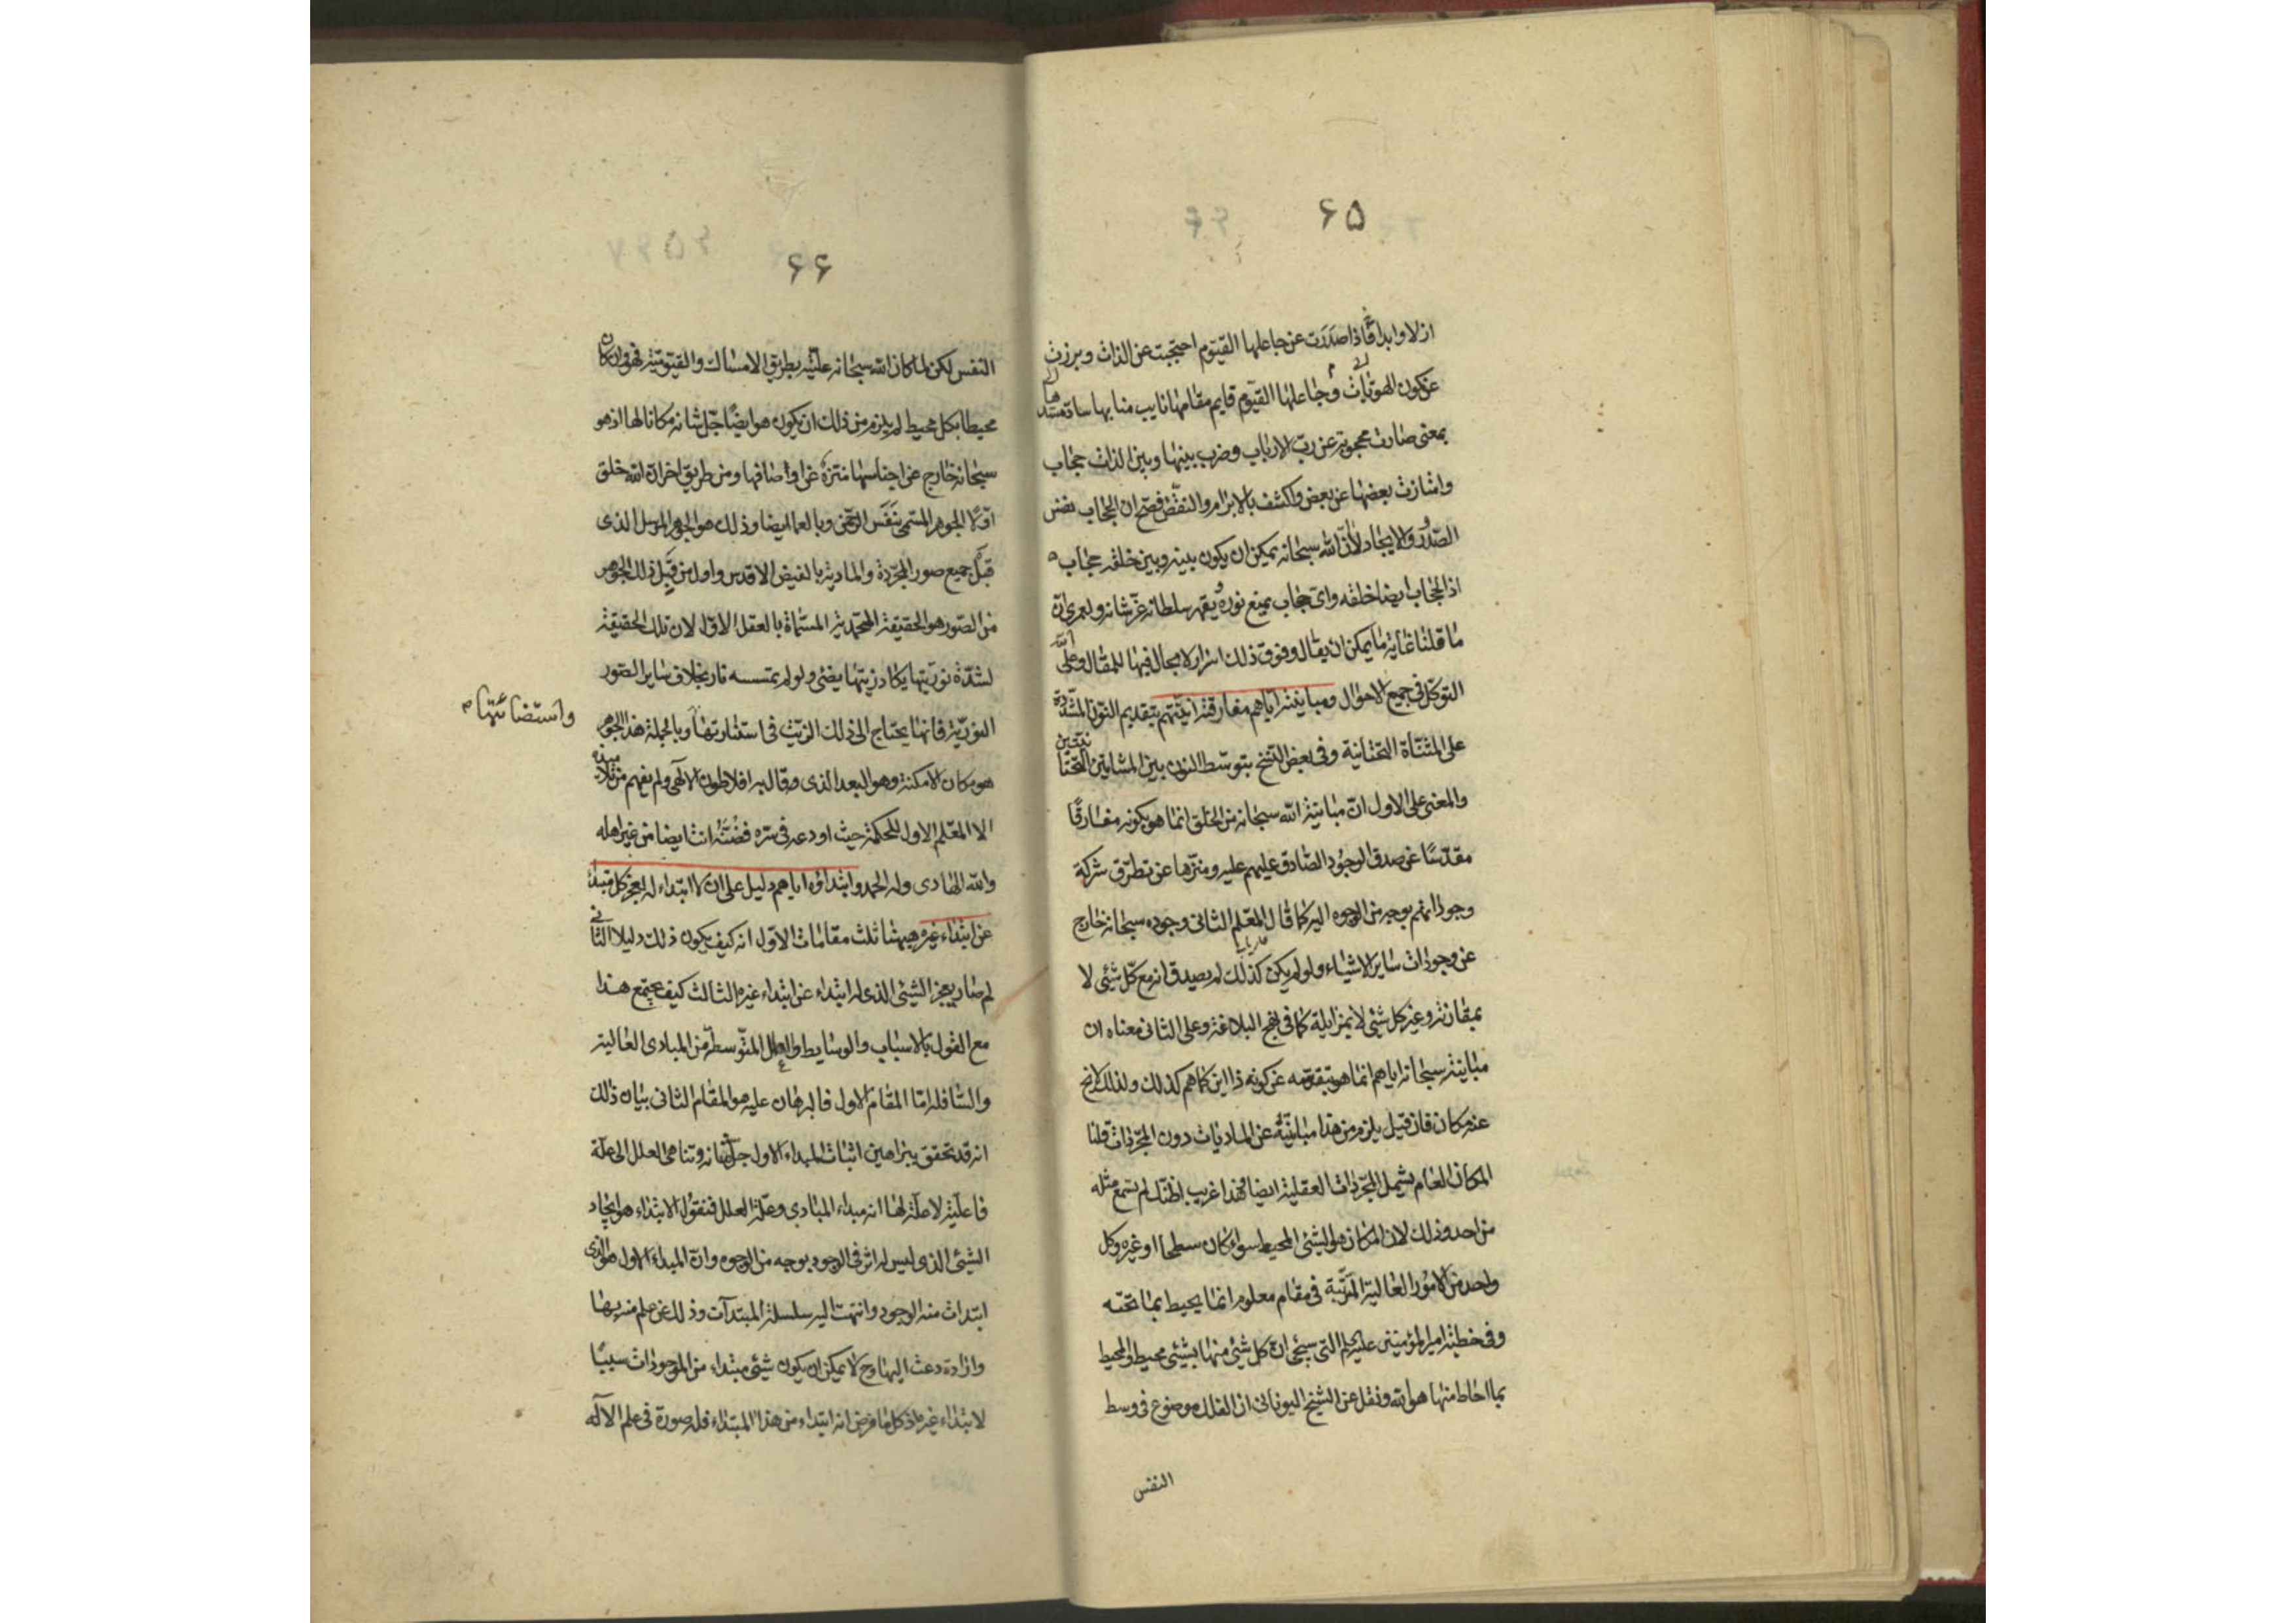 ۶۵
ازلا وابدا فاذا صدرت عن جاعلها القيوم احتجبت عن الذات وبرزت
عن كون الهويات وجاعلها القيوم قايم مقامها نايب منابها ساد مسدها
بمعنى صارت محجوبة عن رب الارباب وضرب بينها وبين الذات حجاب
وامتازت بعضها عن بعض وانكشف بالابرام والنقض فصح ان الحجاب نفس
الصدور والايجاد لا ان الله سبحانه يمكن ان يكون بينه وبين خلقه حجاب
اذ الحجاب ايضا خلقه واى حجاب يمنع نوره ويقهر سلطانه عز شانه ولعمرى ان
ما قلنا غاية ما يمكن ان يقال وفوق ذلك اسرار لا مجال فيها للمقال وعلى الله
التوكل فى جميع الاحوال ومباينته اياهم مفارقته انيتهم بتقديم النون المشددة
على المثناة التحتانية وفى بعض النسخ بتوسط النون بين المثناتين التحتانيتين
والمعنى على الاول ان مباينة الله سبحانه من الخلق انما هو بكونه مفارقا
مقدسا عن صدق الوجود الصادق عليهم عليه ومنزها عن تطرق شركة
وجوداتهم بوجه من الوجوه اليه كما قال المعلم الثانى وجوده سبحانه خارج
عن وجودات ساير الاشياء ولو لم يكن كذلك لم يصدق انه مع كل شئ لا
بمقارنة وغير كل شئ لا بمزايلة كما فى نهج البلاغة وعلى الثانى معناه ان
مباينته سبحانه اياهم انما هو بتقدسه عن كونه ذا اين كما هم كذلك ولذلك لا يخ
عنه مكان فان قيل يلزم من هذا مباينته عن الماديات دون المجردات قلنا
المكان العام يشمل المجردات العقلية ايضا فهذا غريب اظنك لم تسمع مثله
من احد وذلك لان المكان هو الشئ المحيط سواء كان سطحا او غيره وكل
واحد من الامور العالية المرتبة فى مقام معلوم انما يحيط بما تحته
وفى خطبة امير المؤمنين عليه السلم التى سيجئ ان كل شئ منها بشئ محيط والمحيط
بما احاط منها هو الله ونقل عن الشيخ اليونانى ان الفلك موضوع فى وسط
النفس
۶۶
النفس لكن لما كان الله سبحانه علته بطريق الامساك والقيومية فهو وان كان
محيطا بكل محيط لم يلزم من ذلك ان يكون هو ايضا جل شانه مكانا لها اذ هو
سبحانه خارج عن اجناسها متنزه عن اوصافها ومن طريق اخر ان الله خلق
اولا الجوهر المسمى بنفس الرحمن وبالعما ايضا وذلك هو الجوهر المرسل الذى
قبل جميع صور المجردة والمادية بالفيض الاقدس واول من قبل ذلك الجوهر
من الصور هو الحقيقة المحمدية المسماة بالعقل الاول لان تلك الحقيقة
لشدة نوريتها يكاد زيتها يضئ ولو لم تمسسه نار بخلاف ساير الصور
النورية فانها يحتاج الى ذلك الزيت فى استنارتها وبالجملة هذا الجوهر
واستضائتها
هو مكان الامكنة وهو البعد الذى قال به افلاطون الالهى ولم يفهم من تلامذه
الا المعلم الاول للحكمة حيث اودعه فى سره فضنه انت ايضا من غير اهله
والله الهادى وله الحمد وابتداؤه اياهم دليل على ان لا ابتداء له لعجز كل مبتدئ
عن ابتداء غيره هيهنا ثلث مقامات الاول انه كيف يكون ذلك دليلا الثانى
لم صار يعجز الشئ الذى له ابتداء عن ابتداء غيره الثالث كيف يجتمع هذا
مع القول بالاسباب والوسايط والعلل المتوسطة من المبادى العالية
والسافلة اما المقام الاول فالبرهان عليه هو المقام الثانى بيان ذلك
انه قد تحقق ببراهين اثبات المبداء الاول جل شانه وتناهى العلل الى علة
فاعلية لا علة لها انه مبداء المبادى وعلة العلل فنقول الابتداء هو ايجاد
الشئ الذى ليس له اثر فى الوجود بوجه من الوجوه وان المبداء الاول هو الذى
ابتدات منه الوجود وانتهت اليه سلسلة المبتدآت وذلك عن علم منه بها
وارادة دعت اليها وح لا يمكن ان يكون شئ مبتداء من الموجودات سببا
لابتداء غيره اذ كل ما فرض انه ابتداء من هذا المبتداء فله صورة فى علم الاله